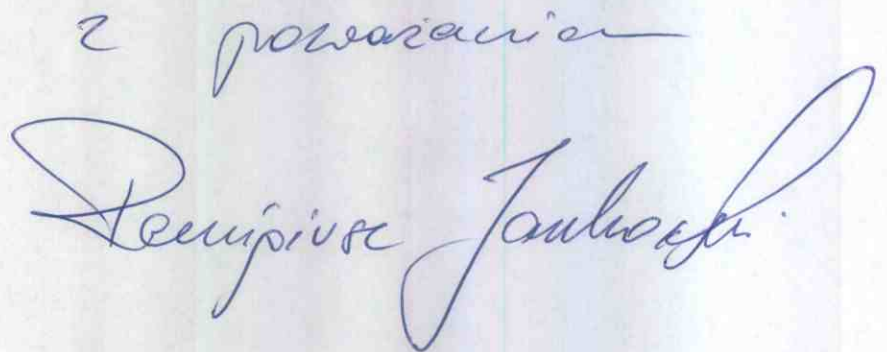 z poważaniem
Remigiusz Jankowski